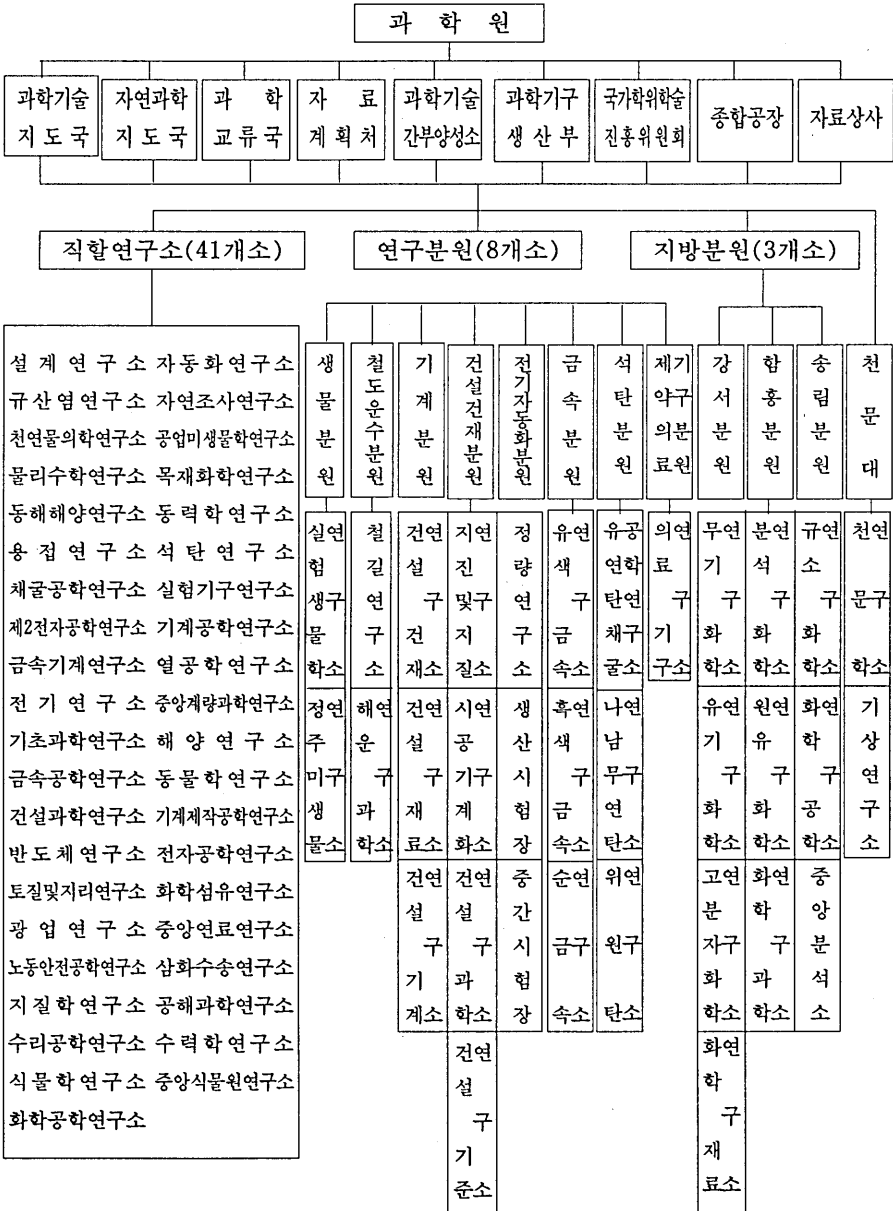 과 학 원
과학기술 지도국
자연과학 지도국
과 학 교류국
자 료 계획처
과학기술 간부양성소
과학기구 생 산 부
국가학위학술 진흥위원회
종합공장
자료상사
직할연구소(41개소)
연구분원(8개소)
지방분원(3개소)
설 계 연 구 소 자동화연구소
규산염연구소 자연조사연구소
천연물의학연구소 공업미생물학연구소
물리수학연구소 목재화학연구소
동해해양연구소 동력학연구소
용 접 연 구 소 석 탄 연 구 소
채굴공학연구소 실험기구연구소
제2전자공학연구소 기계공학연구소
금속기계연구소 열공학연구소
전 기 연 구 소 중앙계량과학연구소
기초과학연구소 해 양 연 구 소
금속공학연구소 동물학연구소
건설과학연구소 기계제작공학연구소
반도체연구소 전자공학연구소
토질및지리연구소 화학섬유연구소
광 업 연 구 소 중앙연료연구소
노동안전공학연구소 삼화수송연구소
지질학연구소 공해과학연구소
수리공학연구소 수력학연구소
식물학연구소 중앙식물원연구소
화학공학연구소
생물분원
실험생물학연구소
정주미생물연구소
철도운수분원
철길연구소
해운과학연구소
기계분원
건설건재연구소
건설재료연구소
건설기계연구소
건설건재분원
지진및지질연구소
시공기계화연구소
건설과학연구소
건설기준연구소
전기자동화분원
정량연구소
생산시험장
중간시험장
금속분원
유색금속연구소
흑색금속연구소
순금속연구소
석탄분원
유연탄채굴공학연구소
나남무연탄연구소
위원탄연구소
제약의료기구분원
의료기구연구소
강서분원
무기화학연구소
유기화학연구소
고분자화학연구소
화학재료연구소
함흥분원
분석화학연구소
원유화학연구소
화학과학연구소
송림분원
규소화학연구소
화학공학연구소
중앙분석소
천문대
천문학연구소
기상연구소